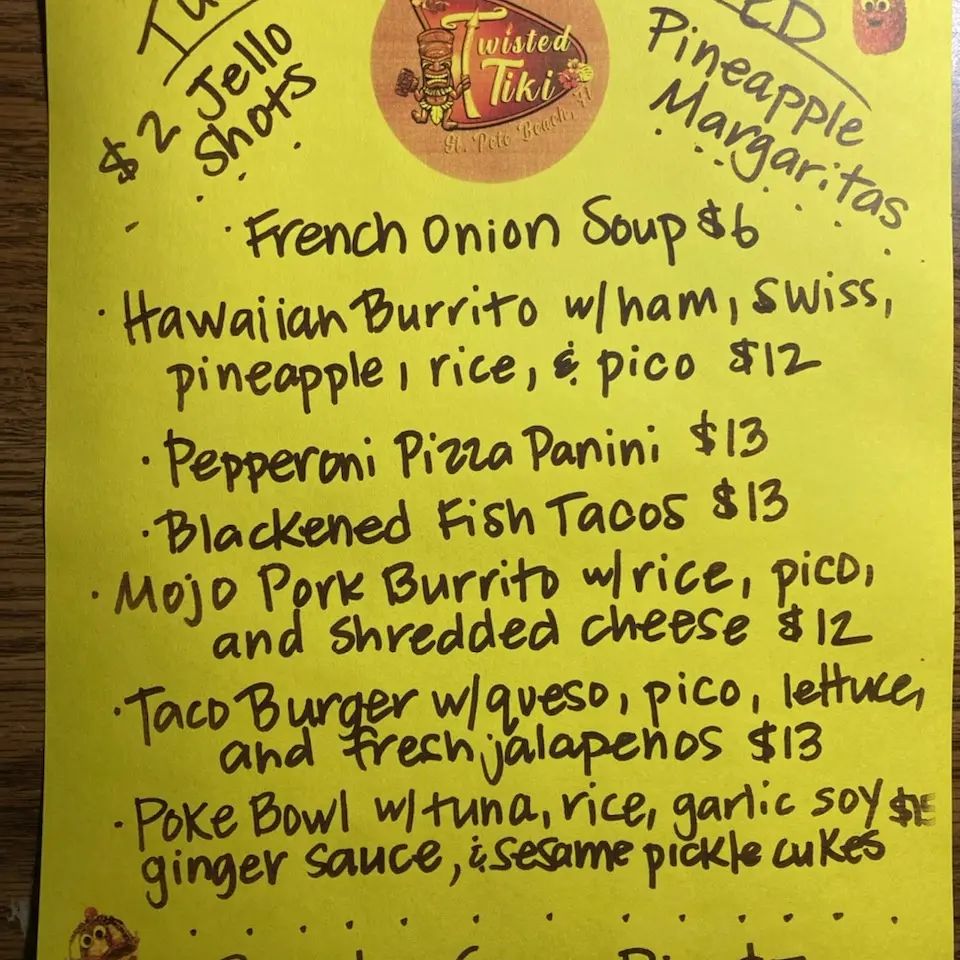 $2 Jello
Shots
Twisted
Tiki
St. Pete Beach, Fl
Pineapple
Margaritas
· French Onion Soup $6
· Hawaiian Burrito w/ham, Swiss,
pineapple, rice, & pico $12
· Pepperoni Pizza Panini $13
· Blackened Fish Tacos $13
· Mojo Pork Burrito w/rice, pico,
and shredded cheese $12
· Taco Burger w/queso, pico, lettuce,
and fresh jalapenos $13
· Poke Bowl w/tuna, rice, garlic soy $15
ginger sauce, & sesame pickle cukes